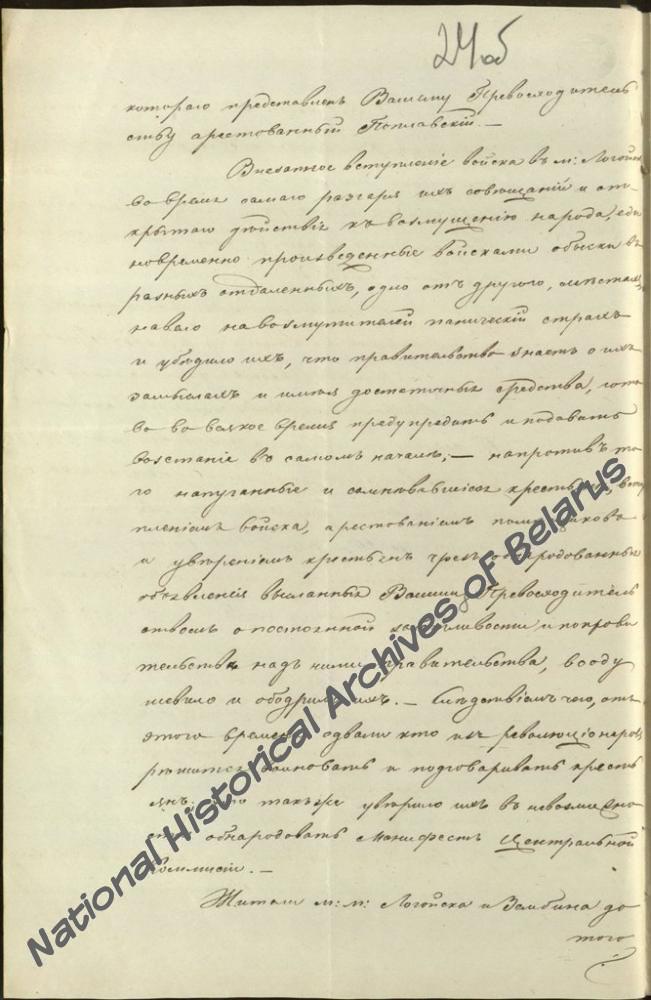 24об
котораго представленъ Вашему Превосходитель
ству арестованный Поплавскій. —
Внезапное вступленіе войска въ м: Логойскъ
во время самаго разгара ихъ совѣщаній и от
крытаго дѣйствія къ возмущенію народа, одно
новременно произведенные войсками обыски въ
разныхъ отдаленныхъ, одно отъ другаго, мѣстахъ,
навело на возмутителей паническій страхъ
и убѣдило ихъ, что правительство знаетъ о ихъ
замыслахъ и имѣя достаточныя средства, гото
во во всякое время предупредить и подавить
возстаніе въ самомъ началѣ; — напротивъ то
го напуганные и сомнѣвавшіеся крестьяне, всту
пленіемъ войска, арестованіемъ
и увѣреніемъ крестьянъ чрезъ обнародованныя
объявленія высланныя Вашимъ Превосходитель
ствомъ о постоянной заботливости и покрови
тельствѣ надъ ними правительства, вооду
шевило и ободрило ихъ. — Слѣдствіемъ чего, отъ
этого времени едвали кто изъ революціонеровъ
рѣшится волновать и подговаривать кресть
янъ; это также увѣрило ихъ въ невозможно
сти обнародовать Манифестъ Центральной
Коммисіи. —
Жители м: м: Логойска и Зембина до
того
National Historical Archives of Belarus